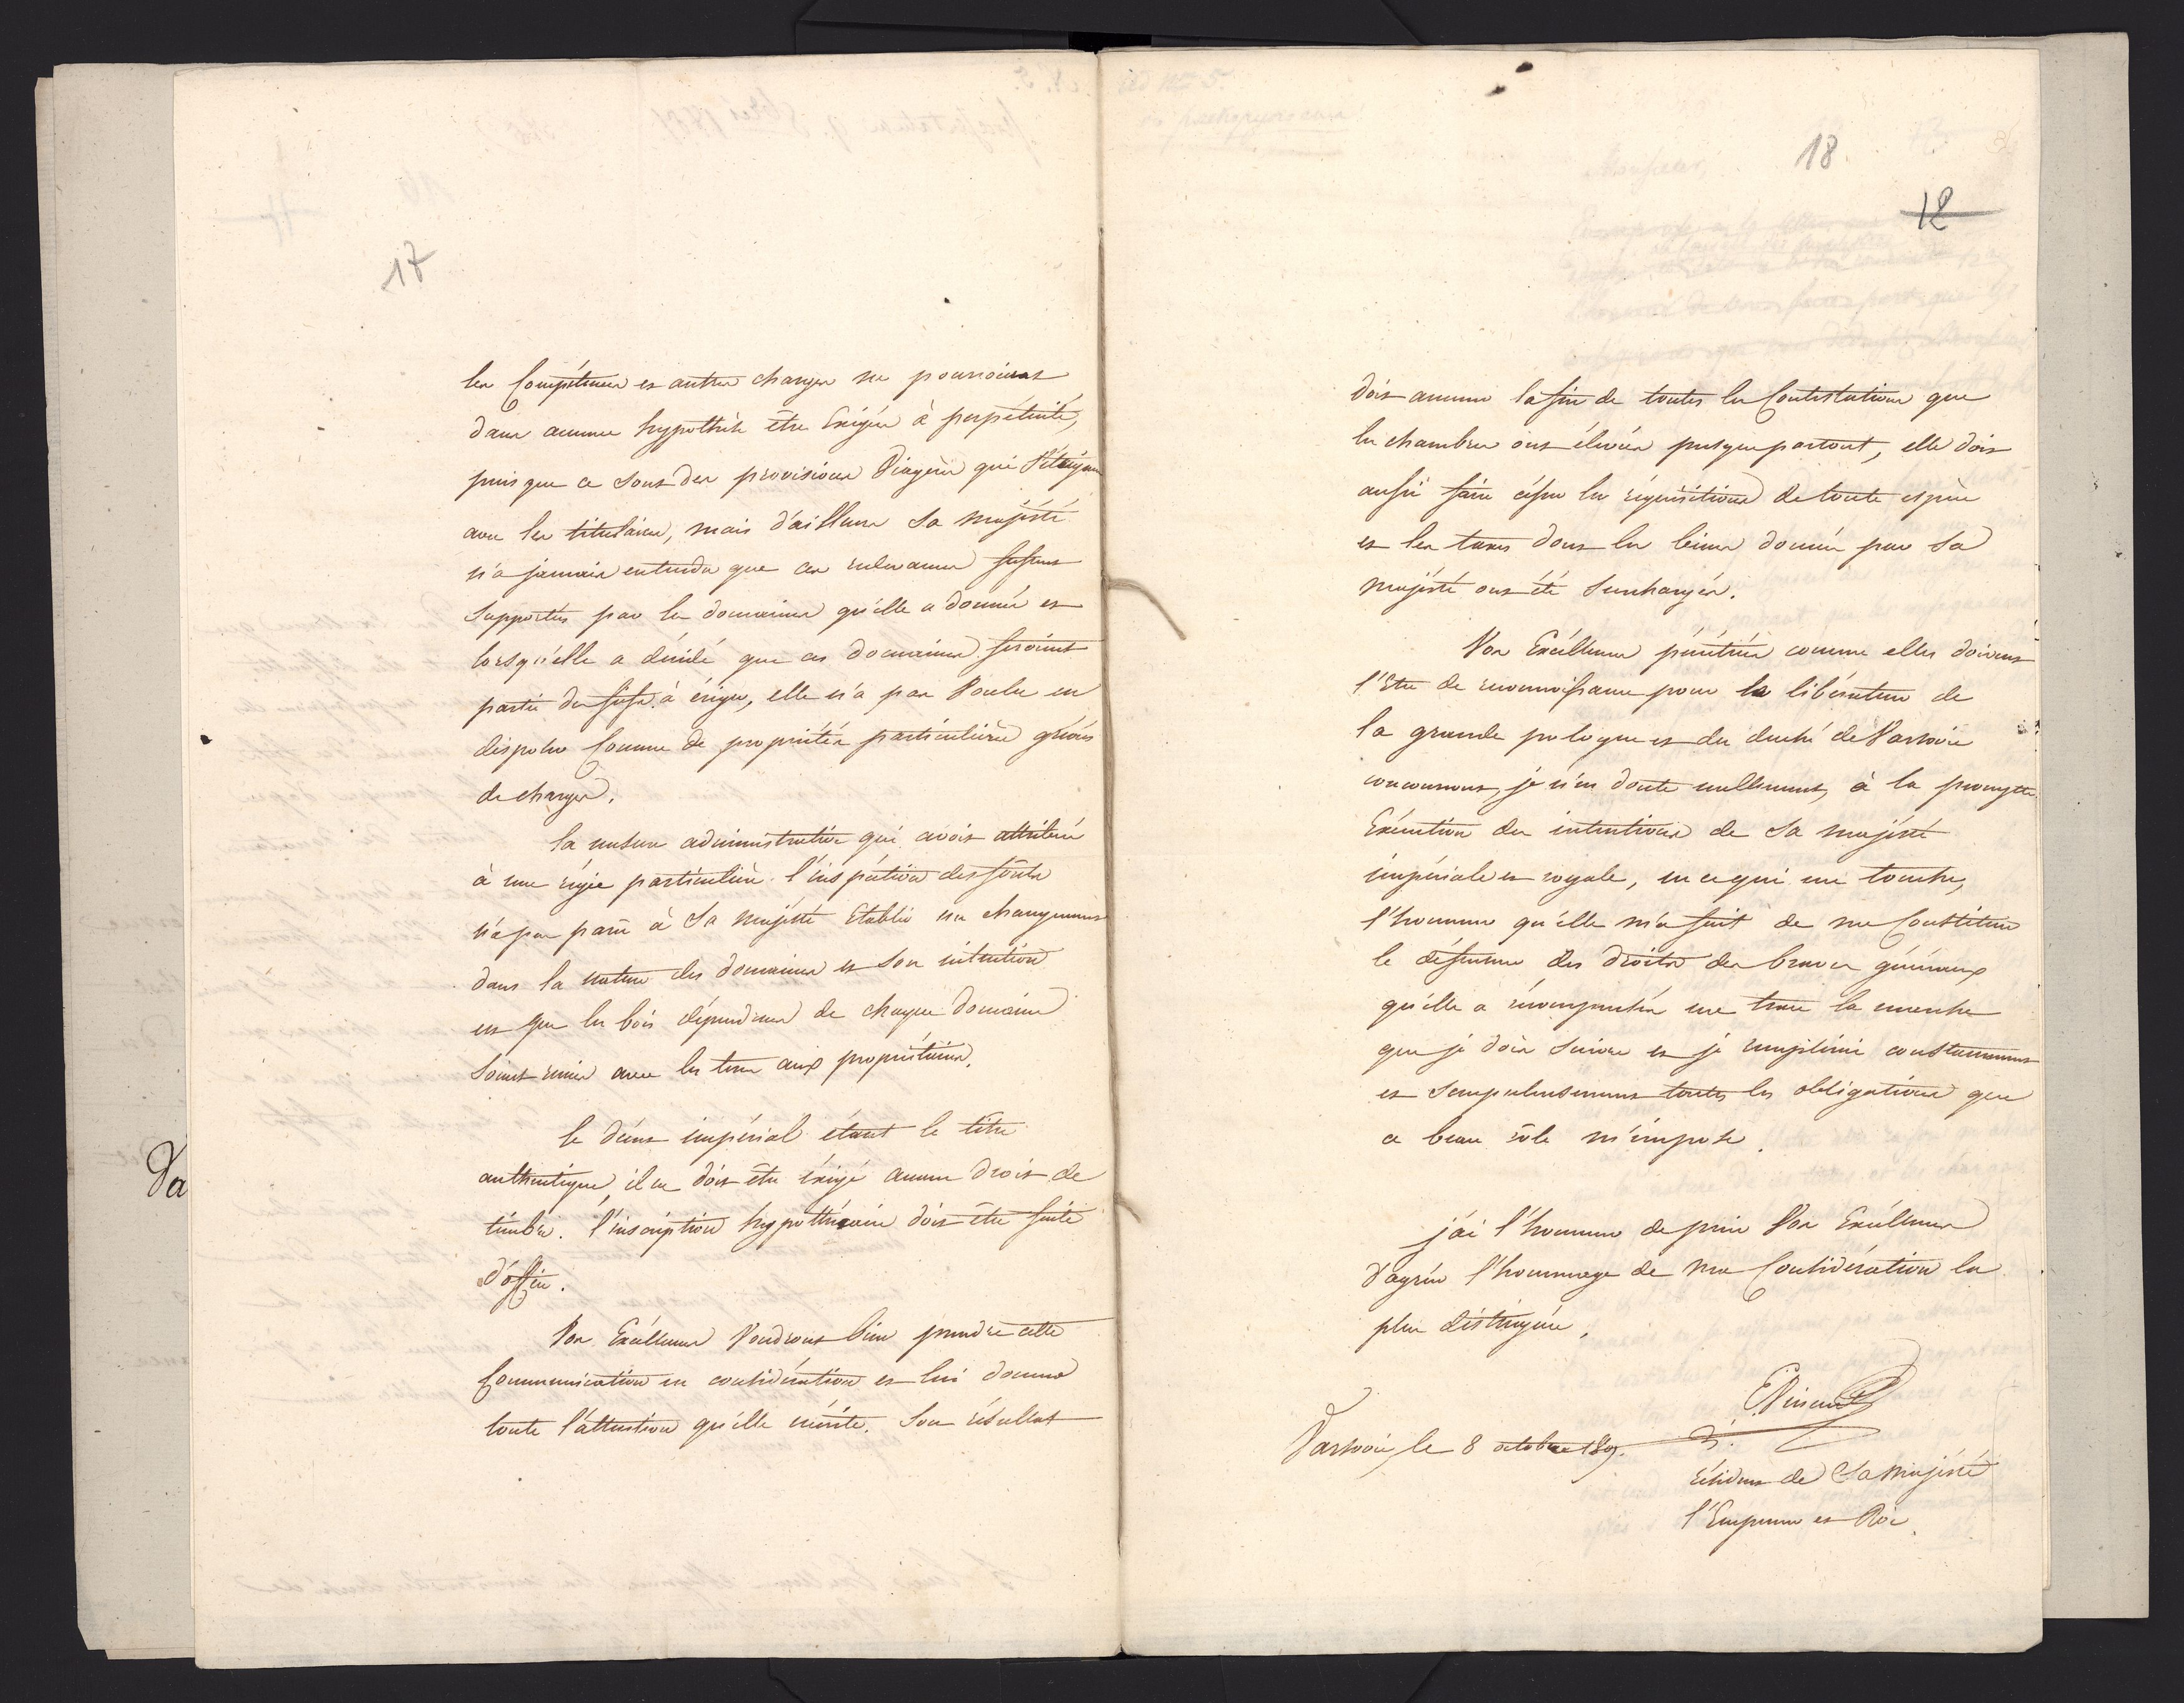 17
les Compétences et autres charges ne pourroient
dans aucune hypothèse être Exigées à perpétuité,
puis que ce sont des provisions Viagères qui s'éteignent
avec les titulaires, mais d'ailleurs Sa majesté
n'a jamais entendu que ces redevances fussent
Supportées par les domaines qu'elle a donnés et
lorsqu'elle a décidé que ces domaines seroient
partie des fiefs à ériger, elle n'a pas Voulu en
disposer Comme de propriétés particulières grévées
de charges.
la mesure administrative qui avoit attribué
à une régie particulière l'inspection des forêts
n'a pas paru à Sa Majesté Etablir un changement
dans la nature des domaines et Son intention
est que les bois dépendans de chaque domaine
soient remis avec les terres aux propriétaires.
le décret impérial étant le titre
authentique, il ne doit être éxigé aucun droit de
timbre. l'inscription hypothécaire doit être faite
d'office.
Vos Excéllences Voudront bien prendre cette
Communication en considération et lui donner
toute l'attention qu'elle mérite. Son résultat
18
12
doit amener la fin de toutes les Contestations que
les chambres ont élevées presque partout, elle doit
aussi faire césser les réquisitions de toute espèce
et les taxes dont les biens donnés par Sa
majésté ont été Surchargés.
Vos Excéllences pénétrées comme elles doivent
l'Etre de reconnoissance pour le libérateur de
la grande pologne et du duché de Varsovie
concourront, je n'en doute nullement, à la prompte
Exécution des intentions de Sa majésté
impériale et royale, en ce qui me touche,
l'honneur qu'elle m'a fait de me Constituer
le défenseur des droits des braves généraux
qu'elle a récompensés me trace la marche
que je dois Suivre et je remplirai constamment
et Scrupuleusement toutes les obligations que
ce beau rôle m'impose.
j'ai l'honneur de prier Vos Excéllences
d'agréer l'hommage de ma Considération la
plus distinguée.
Varsovie le 8 octobre 1807.
EVincent
résident de Sa Majésté
l'Empereur et Roi.